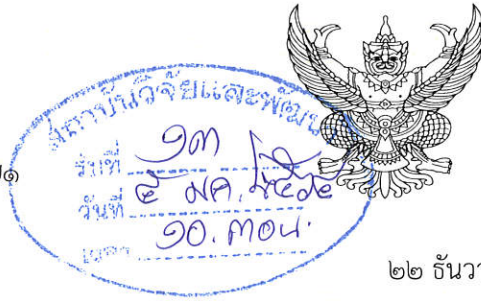 สถาบันวิจัยและพัฒน
รับที่ ๑๓
๑
วันที่ ๕ มค.
เวลา ๑๐.๓๐น.
๒๒ ธันวา